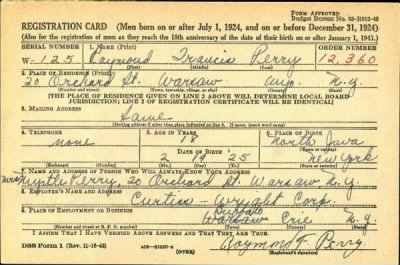 FORM APPROVED
Budget Bureau No. 33-R012-42
REGISTRATION CARD (Men born on or after July 1, 1924, and on or before December 31, 1924)
(Also for the registration of men as they reach the 18th anniversary of the date of their birth on or after January 1, 1943.)
SERIAL NUMBER 1. Name (Print) ORDER NUMBER
W-125 Raymond Francis Perry 12,360
(First) (Middle) (Last)
2. PLACE OF RESIDENCE (Print)
20 Orchard St. Warsaw N.Y.
(Number and street) (Town, township, village, or city) (County) (State)
[THE PLACE OF RESIDENCE GIVEN ON LINE 2 ABOVE WILL DETERMINE LOCAL BOARD
JURISDICTION; LINE 2 OF REGISTRATION CERTIFICATE WILL BE IDENTICAL]
3. MAILING ADDRESS
Same
4. TELEPHONE 5. AGE IN YEARS 6. PLACE OF BIRTH
none 18 North Java
DATE OF BIRTH
2 19 25 New York
(Exchange) (Number) (Mo.) (Day) (Yr.) (State or country)
7. NAME AND ADDRESS OF PERSON WHO WILL ALWAYS KNOW YOUR ADDRESS
Mrs Myrtle Perry, 20 Orchard St. Warsaw N.Y.
8. EMPLOYER'S NAME AND ADDRESS
Curtiss-Wright Corp.
9. PLACE OF EMPLOYMENT OR BUSINESS
Buffalo
Warsaw Erie N.Y.
(Number and street or R. F. D. number) (Town) (County) (State)
I AFFIRM THAT I HAVE VERIFIED ABOVE ANSWERS AND THAT THEY ARE TRUE.
DSS Form 1 (Rev. 11-16-42) (OVER) Raymond F. Perry